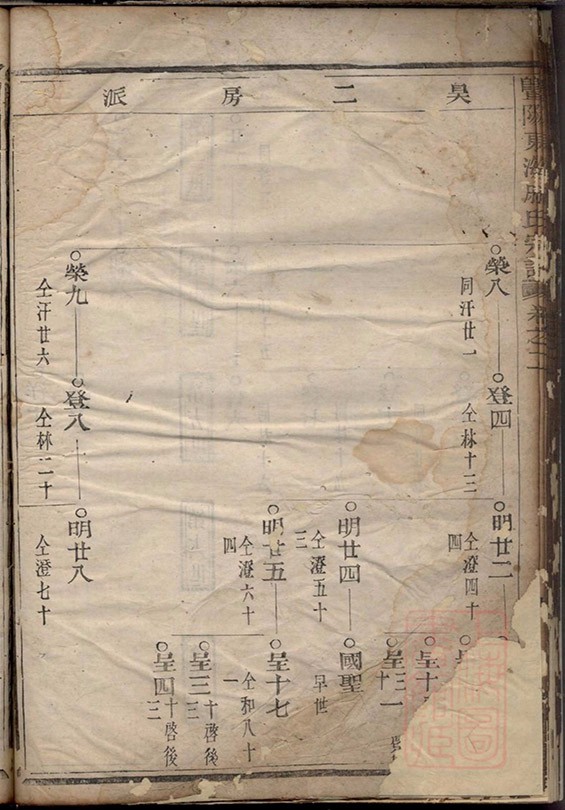 暨陽東海氏宗譜卷之二
昊二房派
榮八
登四
明廿二
同汗廿一
仝林十三
仝澄四十
四
呈十
呈三
十一
明廿四
國聖
仝澄五十
三
早世
明廿五
呈十七
仝澄六十
四
仝和八十
一
呈三
十啓後
三
呈四
十啓後
三
榮九
登八
明廿八
仝汗廿六
仝林二十
仝澄七十